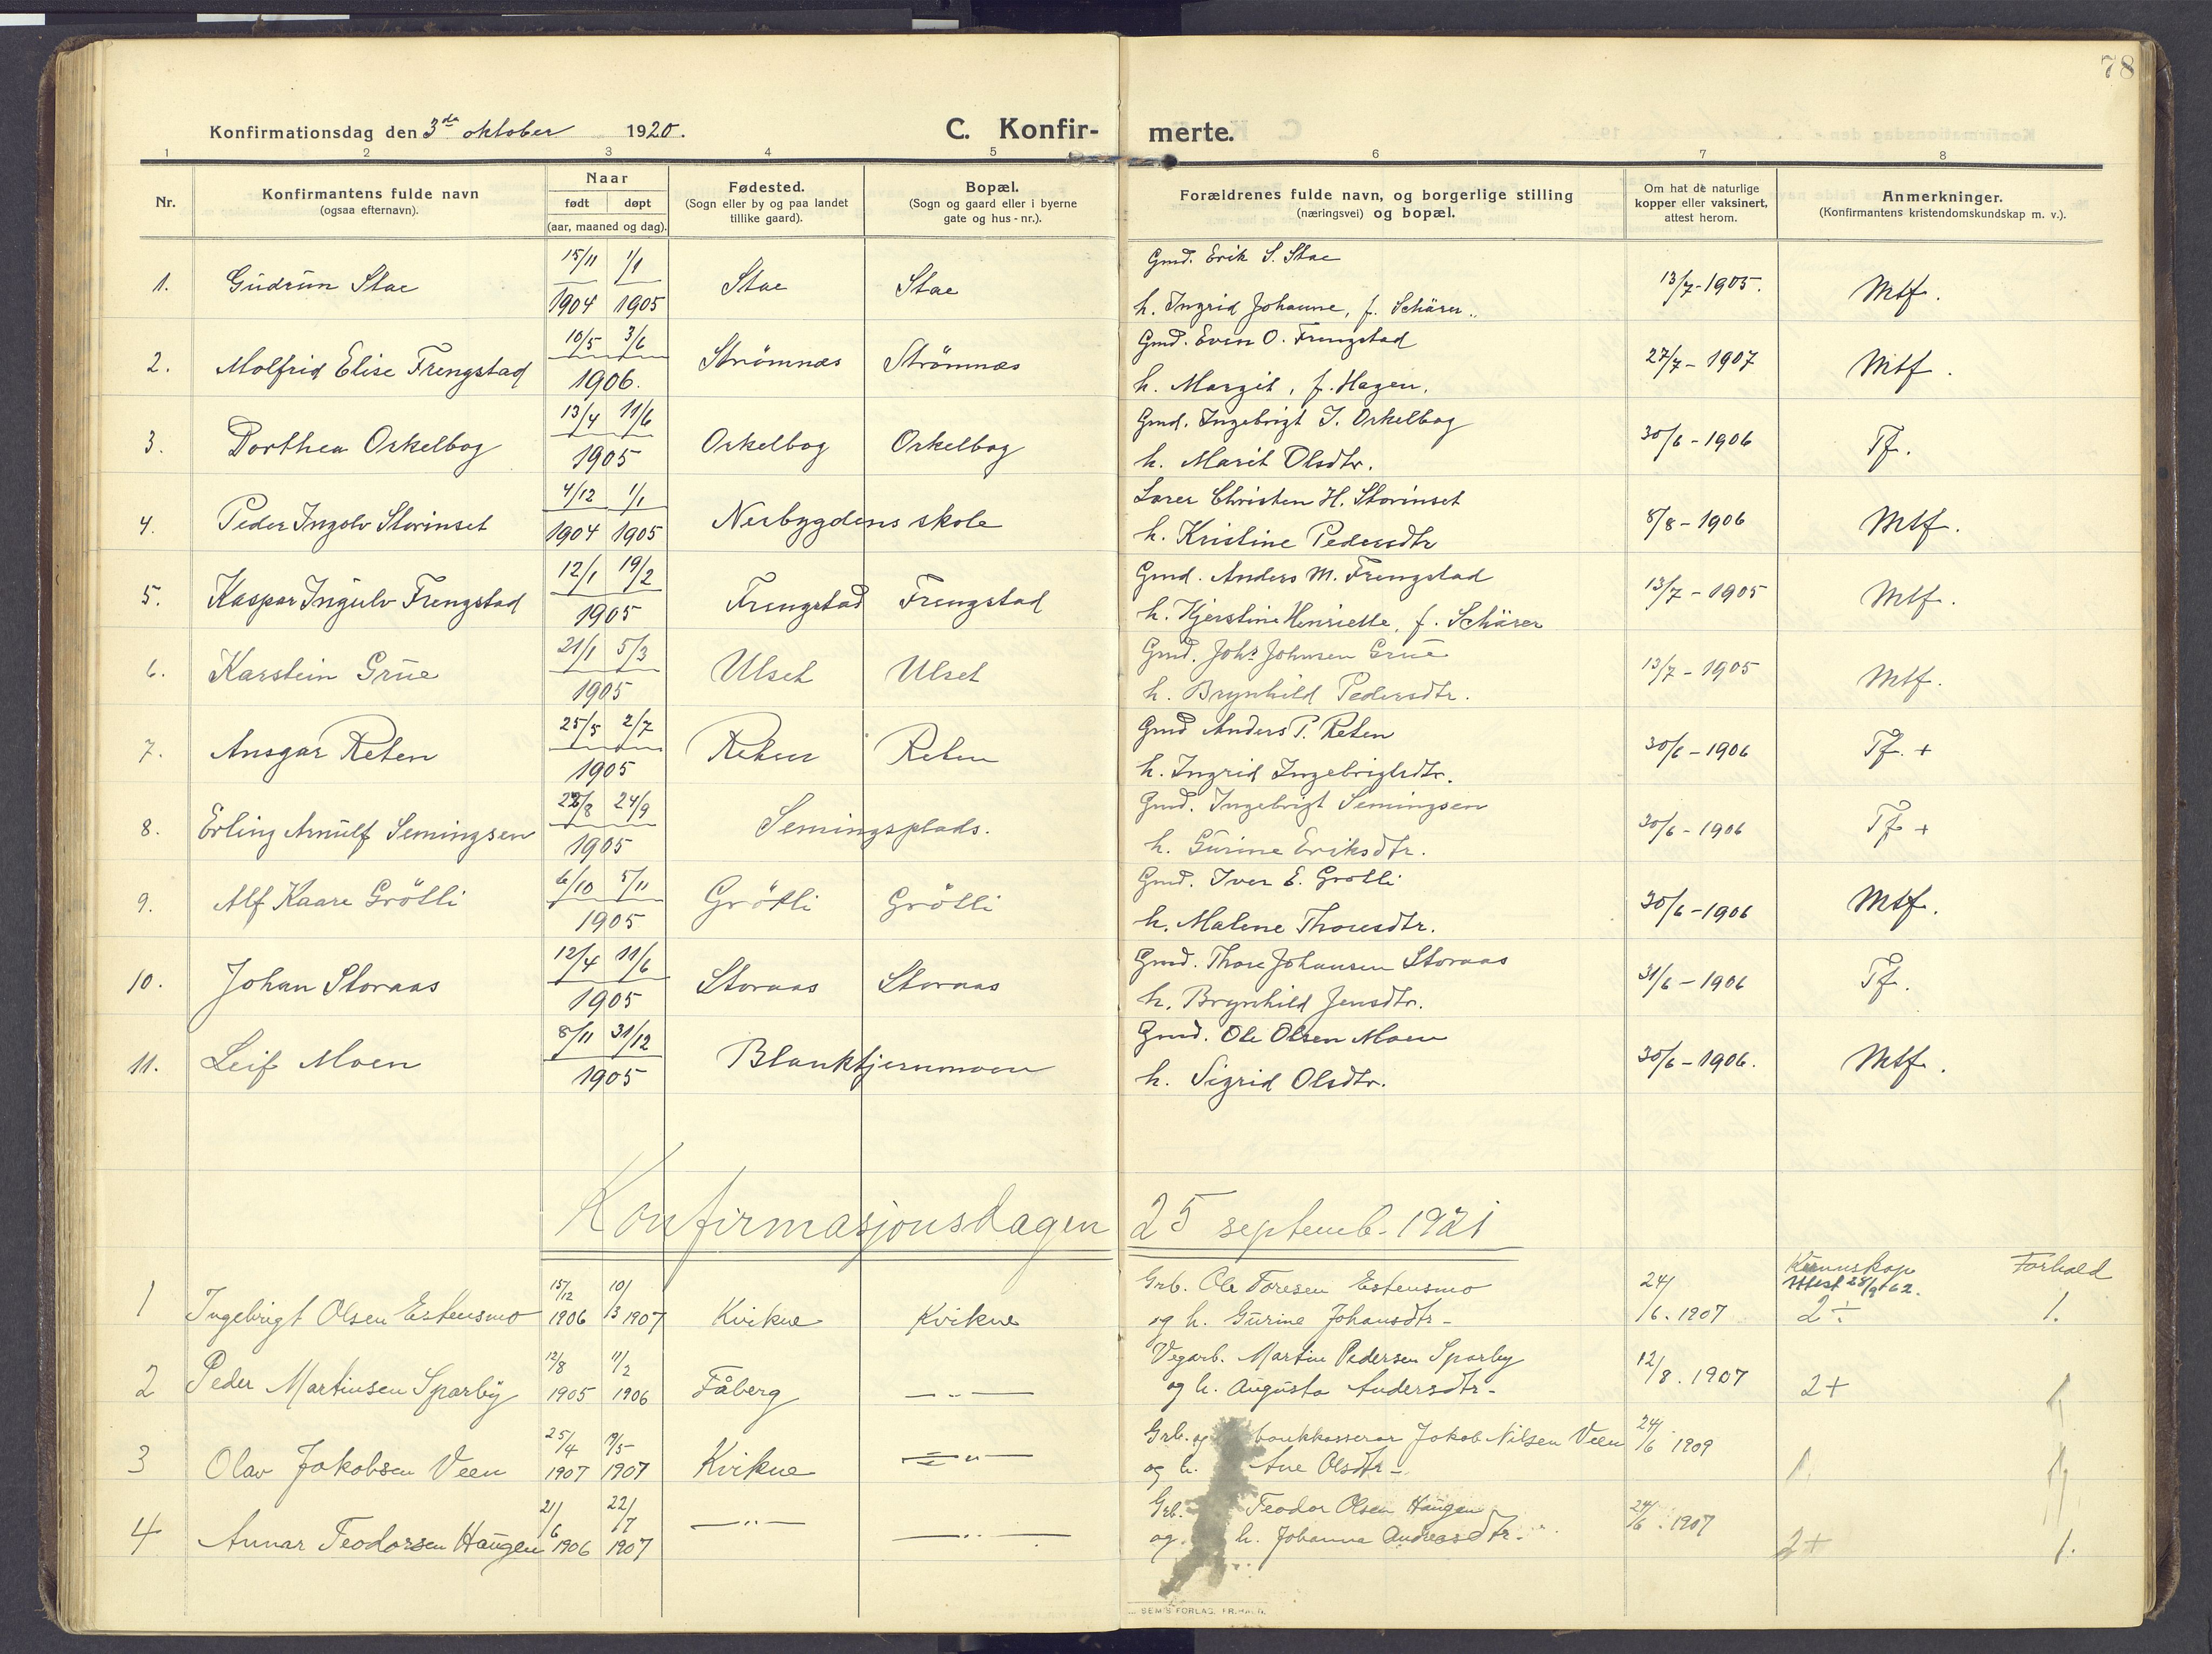 78
Konfirmationsdag den 3de oktober 1920.
C. Konfir-
merte.
1 2 3 4 5 6 7 8
Nr.
Konfirmantens fulde navn
(ogsaa efternavn).
Naar
født døpt
(aar, maaned og dag).
Fødested.
(Sogn eller by og paa landet
tillike gaard).
Bopæl.
(Sogn og gaard eller i byerne
gate og hus-nr.).
Forældrenes fulde navn, og borgerlige stilling
(næringsvei) og bopæl.
Om hat de naturlige
kopper eller vaksinert,
attest herom.
Anmerkninger.
(Konfirmantens kristendomskundskap m. v.).
1. Gudrun Stae 15/11 1904 1/1 1905 Stae Stae Gmd. Erik S. Stae
h. Ingrid Johanne, f. Schärer. 13/7-1905. Mtf.
2. Molfrid Elise Frengstad 10/5 3/6 1906. Strömnæs Strömnæs Gmd. Even O. Frengstad
h. Margit, f. Hagen. 27/7-1907 Mtf.
3. Dorthea Orkelbog 13/4 11/6 1905 Orkelbog Orkelbog Gmd. Ingebrigt J. Orkelbog
h. Marit Olsdtr. 30/6-1906 Tf.
4. Peder Ingolv Storinset 4/12 1904 1/1 1905 Nerbygdens skole Lærer Christen H. Storinset
h. Kristine Pedersdtr 8/8-1906 Mtf.
5. Kaspar Ingulv Frengstad 12/1 19/2 1905 Frengstad Frengstad Gmd. Anders M. Frengstad
h. Kjerstine Henriette, f. Schärer 13/7-1905 Mtf.
6. Karstein Grue 21/1 5/3 1905 Ulset Ulset Gmd. Johs Johnsen Grue
h. Brynhild Pedersdtr. 13/7-1905 Mtf.
7. Ansgar Reten 25/5 2/7 1905 Reten Reten Gmd Anders P. Reten
h. Ingrid Ingebrigtsdtr. 30/6-1906 Tf. +
8. Erling Arnulf Semingsen 22/8 24/9 1905 Semingsplads. Gmd. Ingebrigt Semingsen
h. Gurine Eriksdtr. 30/6-1906 Tf +
9. Alf Kaare Grötli 6/10 5/11 1905 Grötli Grötli Gmd. Iver E. Grötli
h. Malene Thoresdtr. 30/6-1906 Mtf.
10. Johan Storaas 12/4 11/6 1905 Storaas Storaas Gmd. Thore Johansen Storaas
h. Brynhild Jensdtr. 31/6-1906 Tf.
11. Leif Moen 8/11 31/12 1905 Blanktjernmoen Gmd. Ole Olsen Moen
h. Sigrid Olsdtr. 30/6-1906. Mtf.
Konfirmasjonsdagen 25 septemb. 1921
Kunnskap Forhold
Attest 28/9 62.
1 Ingebrigt Olsen Estensmo 15/12 1906 10/3 1907 Kvikne Kvikne Grb. Ole Toresen Estensmo
og h. Gurine Johansdtr- 24/6. 1907 2÷ 1.
2 Peder Martinsen Sparby 12/8 1905 11/2 1906 Fåberg -"- Vegarb. Martin Pedersen Sparby
og h. Augusta Andersdtr- 12/8. 1907 2+ 1
3 Olav Jakobsen Veen 25/4 1907 19/5 1907 Kvikne -"- Grb. og bankkasserer Jakob Nilsen Veen
og h. Ane Olsdtr- 24/6 1909 1. 1
4 Annar Teodorsen Haugen 21/6 1906 22/7 1907 -"- -"- Grb. Teodor Olsen Haugen
og h. Johanna Andreasdtr. 24/6. 1907 2+ 1.
SEM'S FORLAG, FR.HALD.